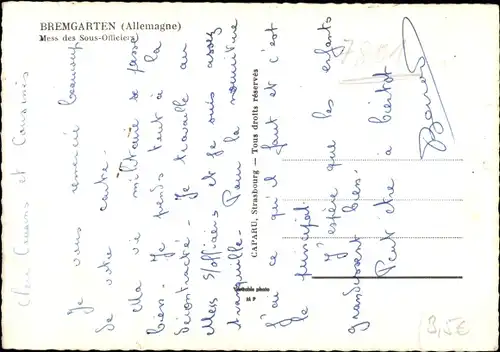 BREMGARTEN (Allemagne)
Mess des Sous-Officiers
Chers Cousins et Cousines
Je vous remercie beaucoup
de votre carte.
Ma vie militaire se passe
bien. Je prends tout à la
décontracté. Je travaille au
Mess S/officiers et je suis assez
tranquille. Pour la nourriture
j'ai ce qu'il faut et c'est
le principal.
J'espère que les enfants
grandissent bien.
Peut être a bientôt
CAPARU, Strasbourg — Tous droits réservés
Véritable photo
M P
3,5€